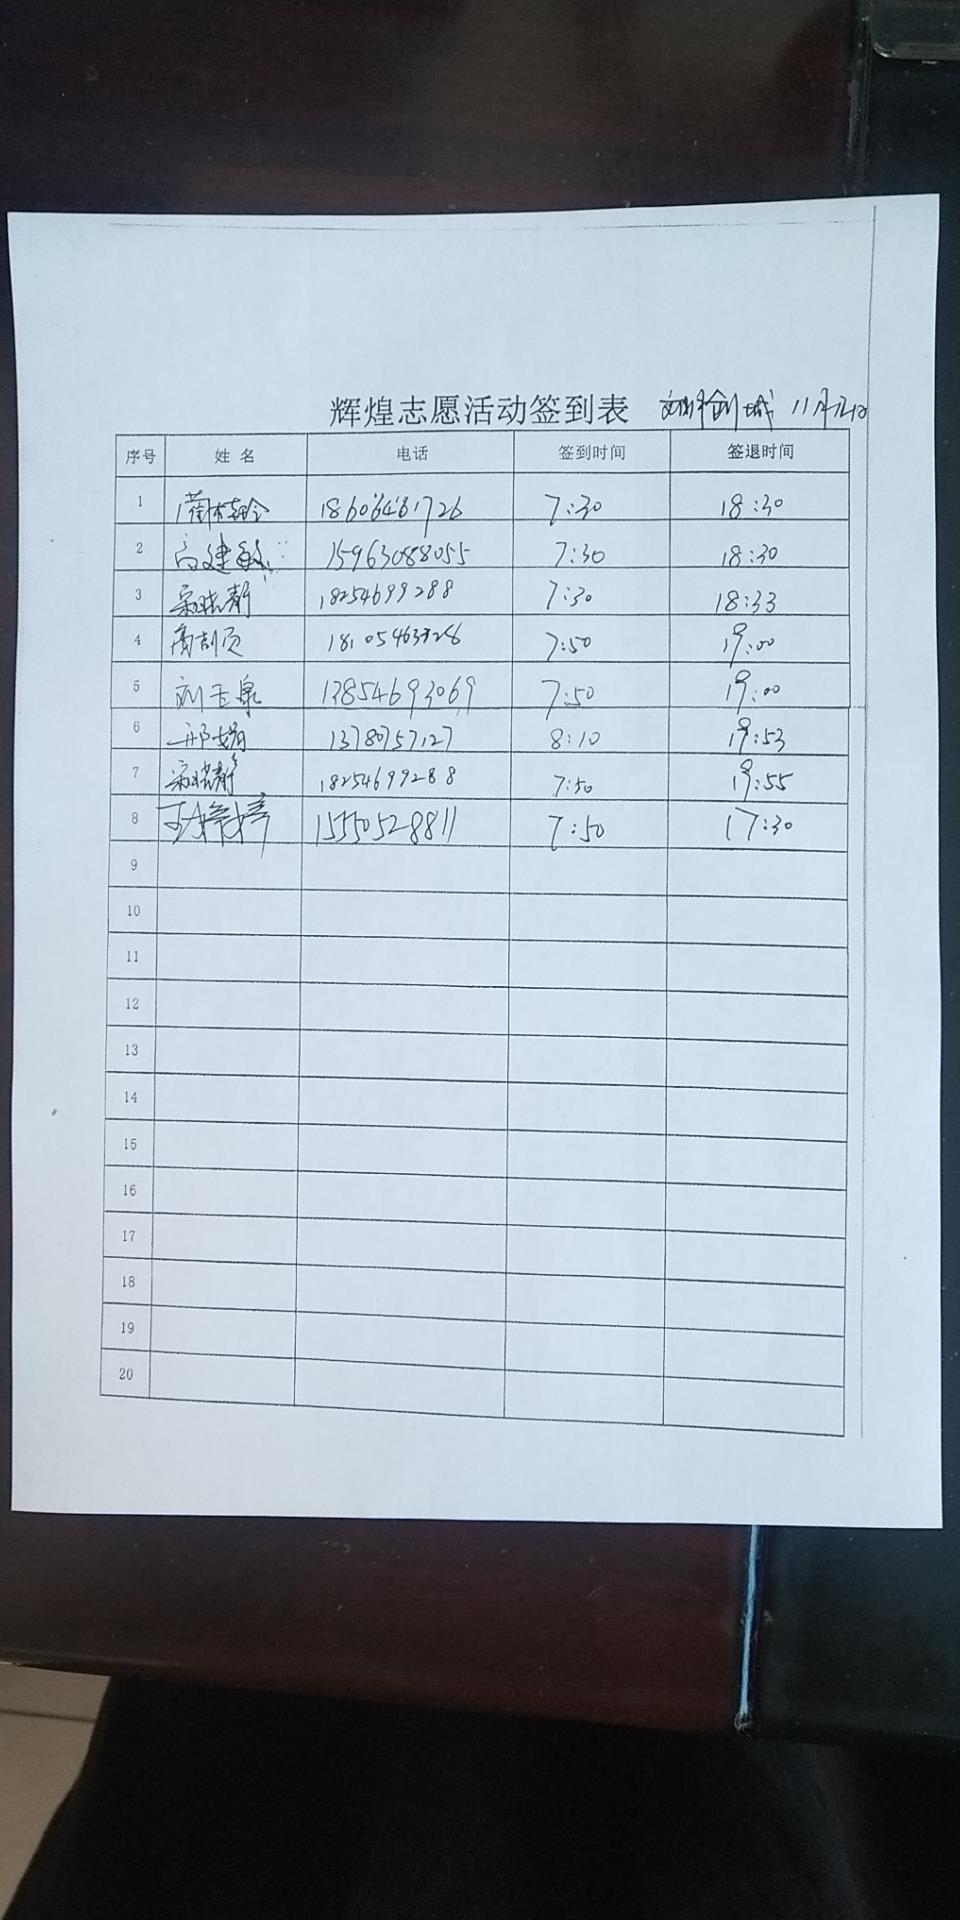 辉煌志愿活动签到表 创城 11月
序号 姓名 电话 签到时间 签退时间
1 18606461726 7:30 18:30
2 高建敏 15963088055 7:30 18:30
3 18254699288 7:30 18:33
4 7:50 19:00
5 刘玉泉 13854693069 7:50 19:00
6 邢娟 13780757127 8:10 19:53
7 18254699288 7:50 19:55
8 王婷婷 15550528811 7:50 17:30
9
10
11
12
13
14
15
16
17
18
19
20